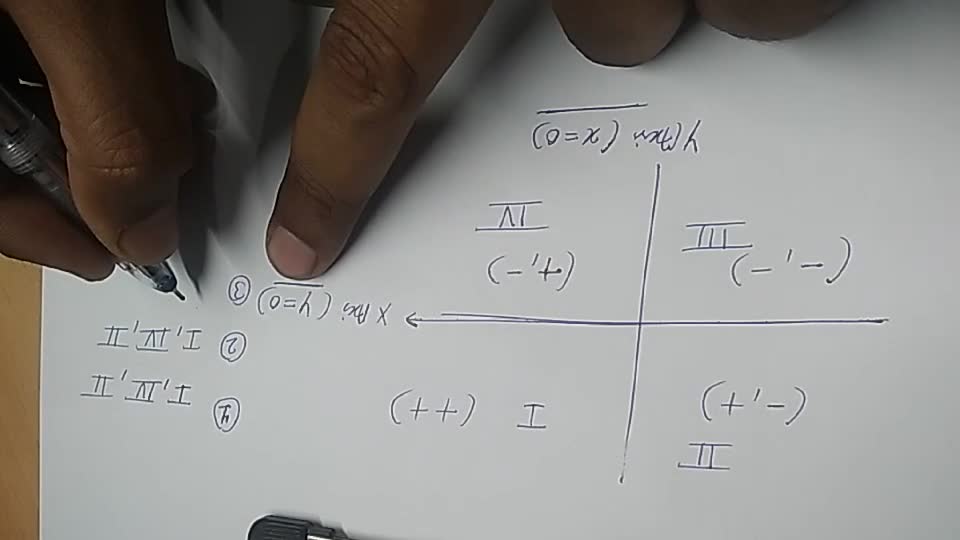 II
(-,+)
I (++)
① I, IV, II
② I, IV, II
X Axis (y=0) ③
(-,-)
III
(+,-)
IV
Y Axis (x=0)